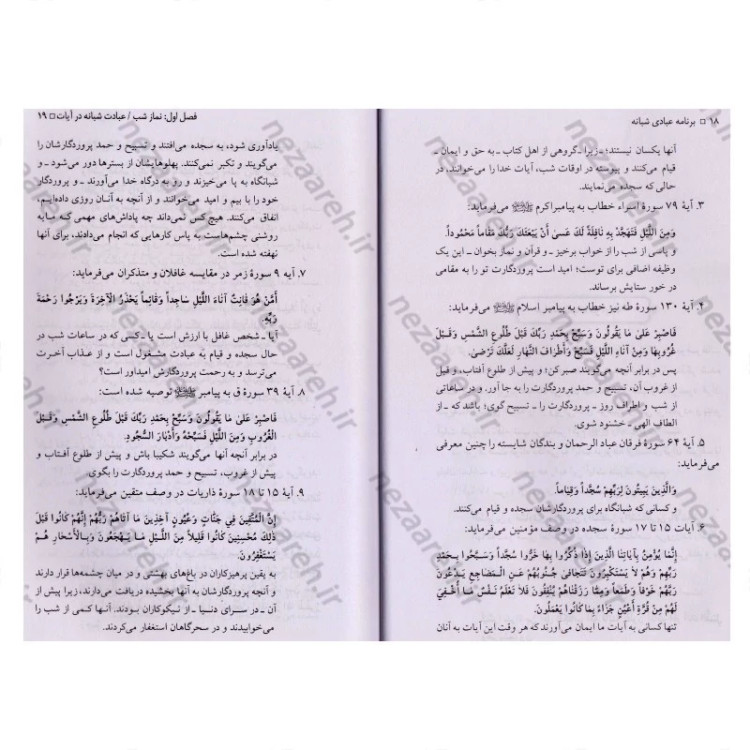 ۱۸ □ برنامه عبادی شبانه
آنها یکسان نیستند؛ ـ زیرا ـ گروهی از اهل کتاب ـ به حق و ایمان ـ
قیام می‌کنند و پیوسته در اوقات شب، آیات خدا را می‌خوانند، در
حالی که سجده می‌نمایند.
۳. آیهٔ ۷۹ سورهٔ اسراء خطاب به پیامبر اکرم ﷺ می‌فرماید:
وَمِنَ اللَّيْلِ فَتَهَجَّدْ بِهِ نَافِلَةً لَكَ عَسىٰ أَنْ يَبْعَثَكَ رَبُّكَ مَقَاماً مَحْمُوداً.
و پاسی از شب را از خواب برخیز ـ و قرآن و نماز بخوان ـ این یک
وظیفه اضافی برای توست؛ امید است پروردگارت تو را به مقامی
در خور ستایش برساند.
۴. آیهٔ ۱۳۰ سورهٔ طه نیز خطاب به پیامبر اسلام ﷺ می‌فرماید:
فَاصْبِرْ عَلىٰ مَا يَقُولُونَ وَسَبِّحْ بِحَمْدِ رَبِّكَ قَبْلَ طُلُوعِ الشَّمْسِ وَقَبْلَ
غُرُوبِهَا وَمِنْ آنَاءِ اللَّيْلِ فَسَبِّحْ وَأَطْرَافَ النَّهَارِ لَعَلَّكَ تَرْضىٰ.
پس در برابر آنچه می‌گویند صبر کن؛ و پیش از طلوع آفتاب، و قبل
از غروب آن، تسبیح و حمد پروردگارت را به جا آور. و در ساعاتی
از شب و اطراف روز ـ پروردگارت را ـ تسبیح گوی؛ باشد که ـ از
الطاف الهی ـ خشنود شوی.
۵. آیهٔ ۶۴ سورهٔ فرقان عباد الرحمان و بندگان شایسته را چنین معرفی
می‌فرماید:
وَالَّذِينَ يَبِيتُونَ لِرَبِّهِمْ سُجَّداً وَقِيَاماً.
و کسانی که شبانگاه برای پروردگارشان سجده و قیام می‌کنند.
۶. آیات ۱۵ تا ۱۷ سورهٔ سجده در وصف مؤمنین می‌فرماید:
إِنَّمَا يُؤْمِنُ بِآيَاتِنَا الَّذِينَ إِذَا ذُكِّرُوا بِهَا خَرُّوا سُجَّداً وَسَبَّحُوا بِحَمْدِ
رَبِّهِمْ وَهُمْ لاَ يَسْتَكْبِرُونَ تَتَجَافىٰ جُنُوبُهُمْ عَنِ الْمَضَاجِعِ يَدْعُونَ
رَبَّهُمْ خَوْفاً وَطَمَعاً وَمِمَّا رَزَقْنَاهُمْ يُنْفِقُونَ فَلاَ تَعْلَمُ نَفْسٌ مَا أُخْفِيَ
لَهُمْ مِنْ قُرَّةِ أَعْيُنٍ جَزَاءً بِمَا كَانُوا يَعْمَلُونَ.
تنها کسانی به آیات ما ایمان می‌آورند که هر وقت این آیات به آنان
فصل اول: نماز شب / عبادت شبانه در آیات □ ۱۹
یادآوری شود، به سجده می‌افتند و تسبیح و حمد پروردگارشان را
می‌گویند و تکبر نمی‌کنند. پهلوهایشان از بسترها دور می‌شود ـ و
شبانگاه به پا می‌خیزند و رو به درگاه خدا می‌آورند ـ و پروردگار
خود را با بیم و امید می‌خوانند و از آنچه به آنان روزی داده‌ایم،
انفاق می‌کنند. هیچ کس نمی‌داند چه پاداش‌های مهمی که مایه
روشنی چشم‌هاست به پاس کارهایی که انجام می‌دادند، برای آنها
نهفته شده است.
۷. آیه ۹ سورهٔ زمر در مقایسه غافلان و متذکران می‌فرماید:
أَمَّنْ هُوَ قَانِتٌ آنَاءَ اللَّيْلِ سَاجِداً وَقَائِماً يَحْذَرُ الآخِرَةَ وَيَرْجُوا رَحْمَةَ
رَبِّهِ
آیا ـ شخص غافل با ارزش است یا ـ کسی که در ساعات شب در
حال سجده و قیام به عبادت مشغول است و از عذاب آخرت
می‌ترسد و به رحمت پروردگارش امیدوار است؟
۸. آیهٔ ۳۹ سورهٔ ق به پیامبر ﷺ توصیه شده است:
فَاصْبِرْ عَلىٰ مَا يَقُولُونَ وَسَبِّحْ بِحَمْدِ رَبِّكَ قَبْلَ طُلُوعِ الشَّمْسِ وَقَبْلَ
الْغُرُوبِ وَمِنَ اللَّيْلِ فَسَبِّحْهُ وَأَدْبَارَ السُّجُودِ.
در برابر آنچه آنها می‌گویند شکیبا باش و پیش از طلوع آفتاب و
پیش از غروب، تسبیح و حمد پروردگارت را بگوی.
۹. آیهٔ ۱۵ تا ۱۸ سورهٔ ذاریات در وصف متقین می‌فرماید:
إِنَّ الْمُتَّقِينَ فِي جَنَّاتٍ وَعُيُونٍ آخِذِينَ مَا آتَاهُمْ رَبُّهُمْ إِنَّهُمْ كَانُوا قَبْلَ
ذٰلِكَ مُحْسِنِينَ كَانُوا قَلِيلاً مِنَ اللَّيْلِ مَا يَهْجَعُونَ وَبِالأَسْحَارِ هُمْ
يَسْتَغْفِرُونَ.
به یقین پرهیزکاران در باغ‌های بهشتی و در میان چشمه‌ها قرار دارند
و آنچه پروردگارشان به آنها بخشیده دریافت می‌دارند، زیرا پیش از
آن ـ در سرای دنیا ـ از نیکوکاران بودند. آنها کمی از شب را
می‌خوابیدند و در سحرگاهان استغفار می‌کردند.
nezaareh.ir